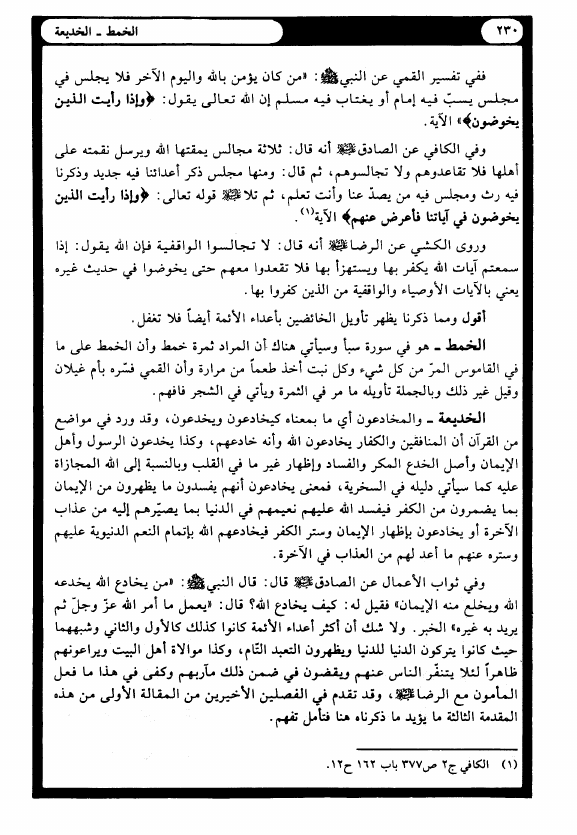 ٢٣٠
الخمط ـ الخديعة
ففي تفسير القمي عن النبي ﷺ: «من كان يؤمن بالله واليوم الآخر فلا يجلس في
مجلس يسبّ فيه إمام أو يغتاب فيه مسلم إن الله تعالى يقول: ﴿وإذا رأيت الذين
يخوضون﴾» الآية.
وفي الكافي عن الصادق عليه السلام أنه قال: ثلاثة مجالس يمقتها الله ويرسل نقمته على
أهلها فلا تقاعدوهم ولا تجالسوهم، ثم قال: ومنها مجلس ذكر أعدائنا فيه جديد وذكرنا
فيه رث ومجلس فيه من يصدّ عنا وأنت تعلم، ثم تلا عليه السلام قوله تعالى: ﴿وإذا رأيت الذين
يخوضون في آياتنا فأعرض عنهم﴾ الآية(١).
وروى الكشي عن الرضا عليه السلام أنه قال: لا تجالسوا الواقفية فإن الله يقول: إذا
سمعتم آيات الله يكفر بها ويستهزأ بها فلا تقعدوا معهم حتى يخوضوا في حديث غيره
يعني بالآيات الأوصياء والواقفية من الذين كفروا بها.
أقول ومما ذكرنا يظهر تأويل الخائضين بأعداء الأئمة أيضاً فلا تغفل.
الخمط ـ هو في سورة سبأ وسيأتي هناك أن المراد ثمرة خمط وأن الخمط على ما
في القاموس المرّ من كل شيء وكل نبت أخذ طعماً من مرارة وأن القمي فسّره بأم غيلان
وقيل غير ذلك وبالجملة تأويله ما مر في الثمرة ويأتي في الشجر فافهم.
الخديعة ـ والمخادعون أي ما بمعناه كيخادعون ويخدعون، وقد ورد في مواضع
من القرآن أن المنافقين والكفار يخادعون الله وأنه خادعهم، وكذا يخدعون الرسول وأهل
الإيمان وأصل الخدع المكر والفساد وإظهار غير ما في القلب وبالنسبة إلى الله المجازاة
عليه كما سيأتي دليله في السخرية، فمعنى يخادعون أنهم يفسدون ما يظهرون من الإيمان
بما يضمرون من الكفر فيفسد الله عليهم نعيمهم في الدنيا بما يصيّرهم إليه من عذاب
الآخرة أو يخادعون بإظهار الإيمان وستر الكفر فيخادعهم الله بإتمام النعم الدنيوية عليهم
وستره عنهم ما أعد لهم من العذاب في الآخرة.
وفي ثواب الأعمال عن الصادق عليه السلام قال: قال النبي ﷺ: «من يخادع الله يخدعه
الله ويخلع منه الإيمان» فقيل له: كيف يخادع الله؟ قال: «يعمل ما أمر الله عزّ وجلّ ثم
يريد به غيره» الخبر. ولا شك أن أكثر أعداء الأئمة كانوا كذلك كالأول والثاني وشبههما
حيث كانوا يتركون الدنيا للدنيا ويظهرون التعبد التّام، وكذا موالاة أهل البيت ويراعونهم
ظاهراً لئلا يتنفّر الناس عنهم ويقضون في ضمن ذلك مآربهم وكفى في هذا ما فعل
المأمون مع الرضا عليه السلام، وقد تقدم في الفصلين الأخيرين من المقالة الأولى من هذه
المقدمة الثالثة ما يؤيد ما ذكرناه هنا فتأمل تفهم.
(١) الكافي ج٢ ص٣٧٧ باب ١٦٢ ح١٢.